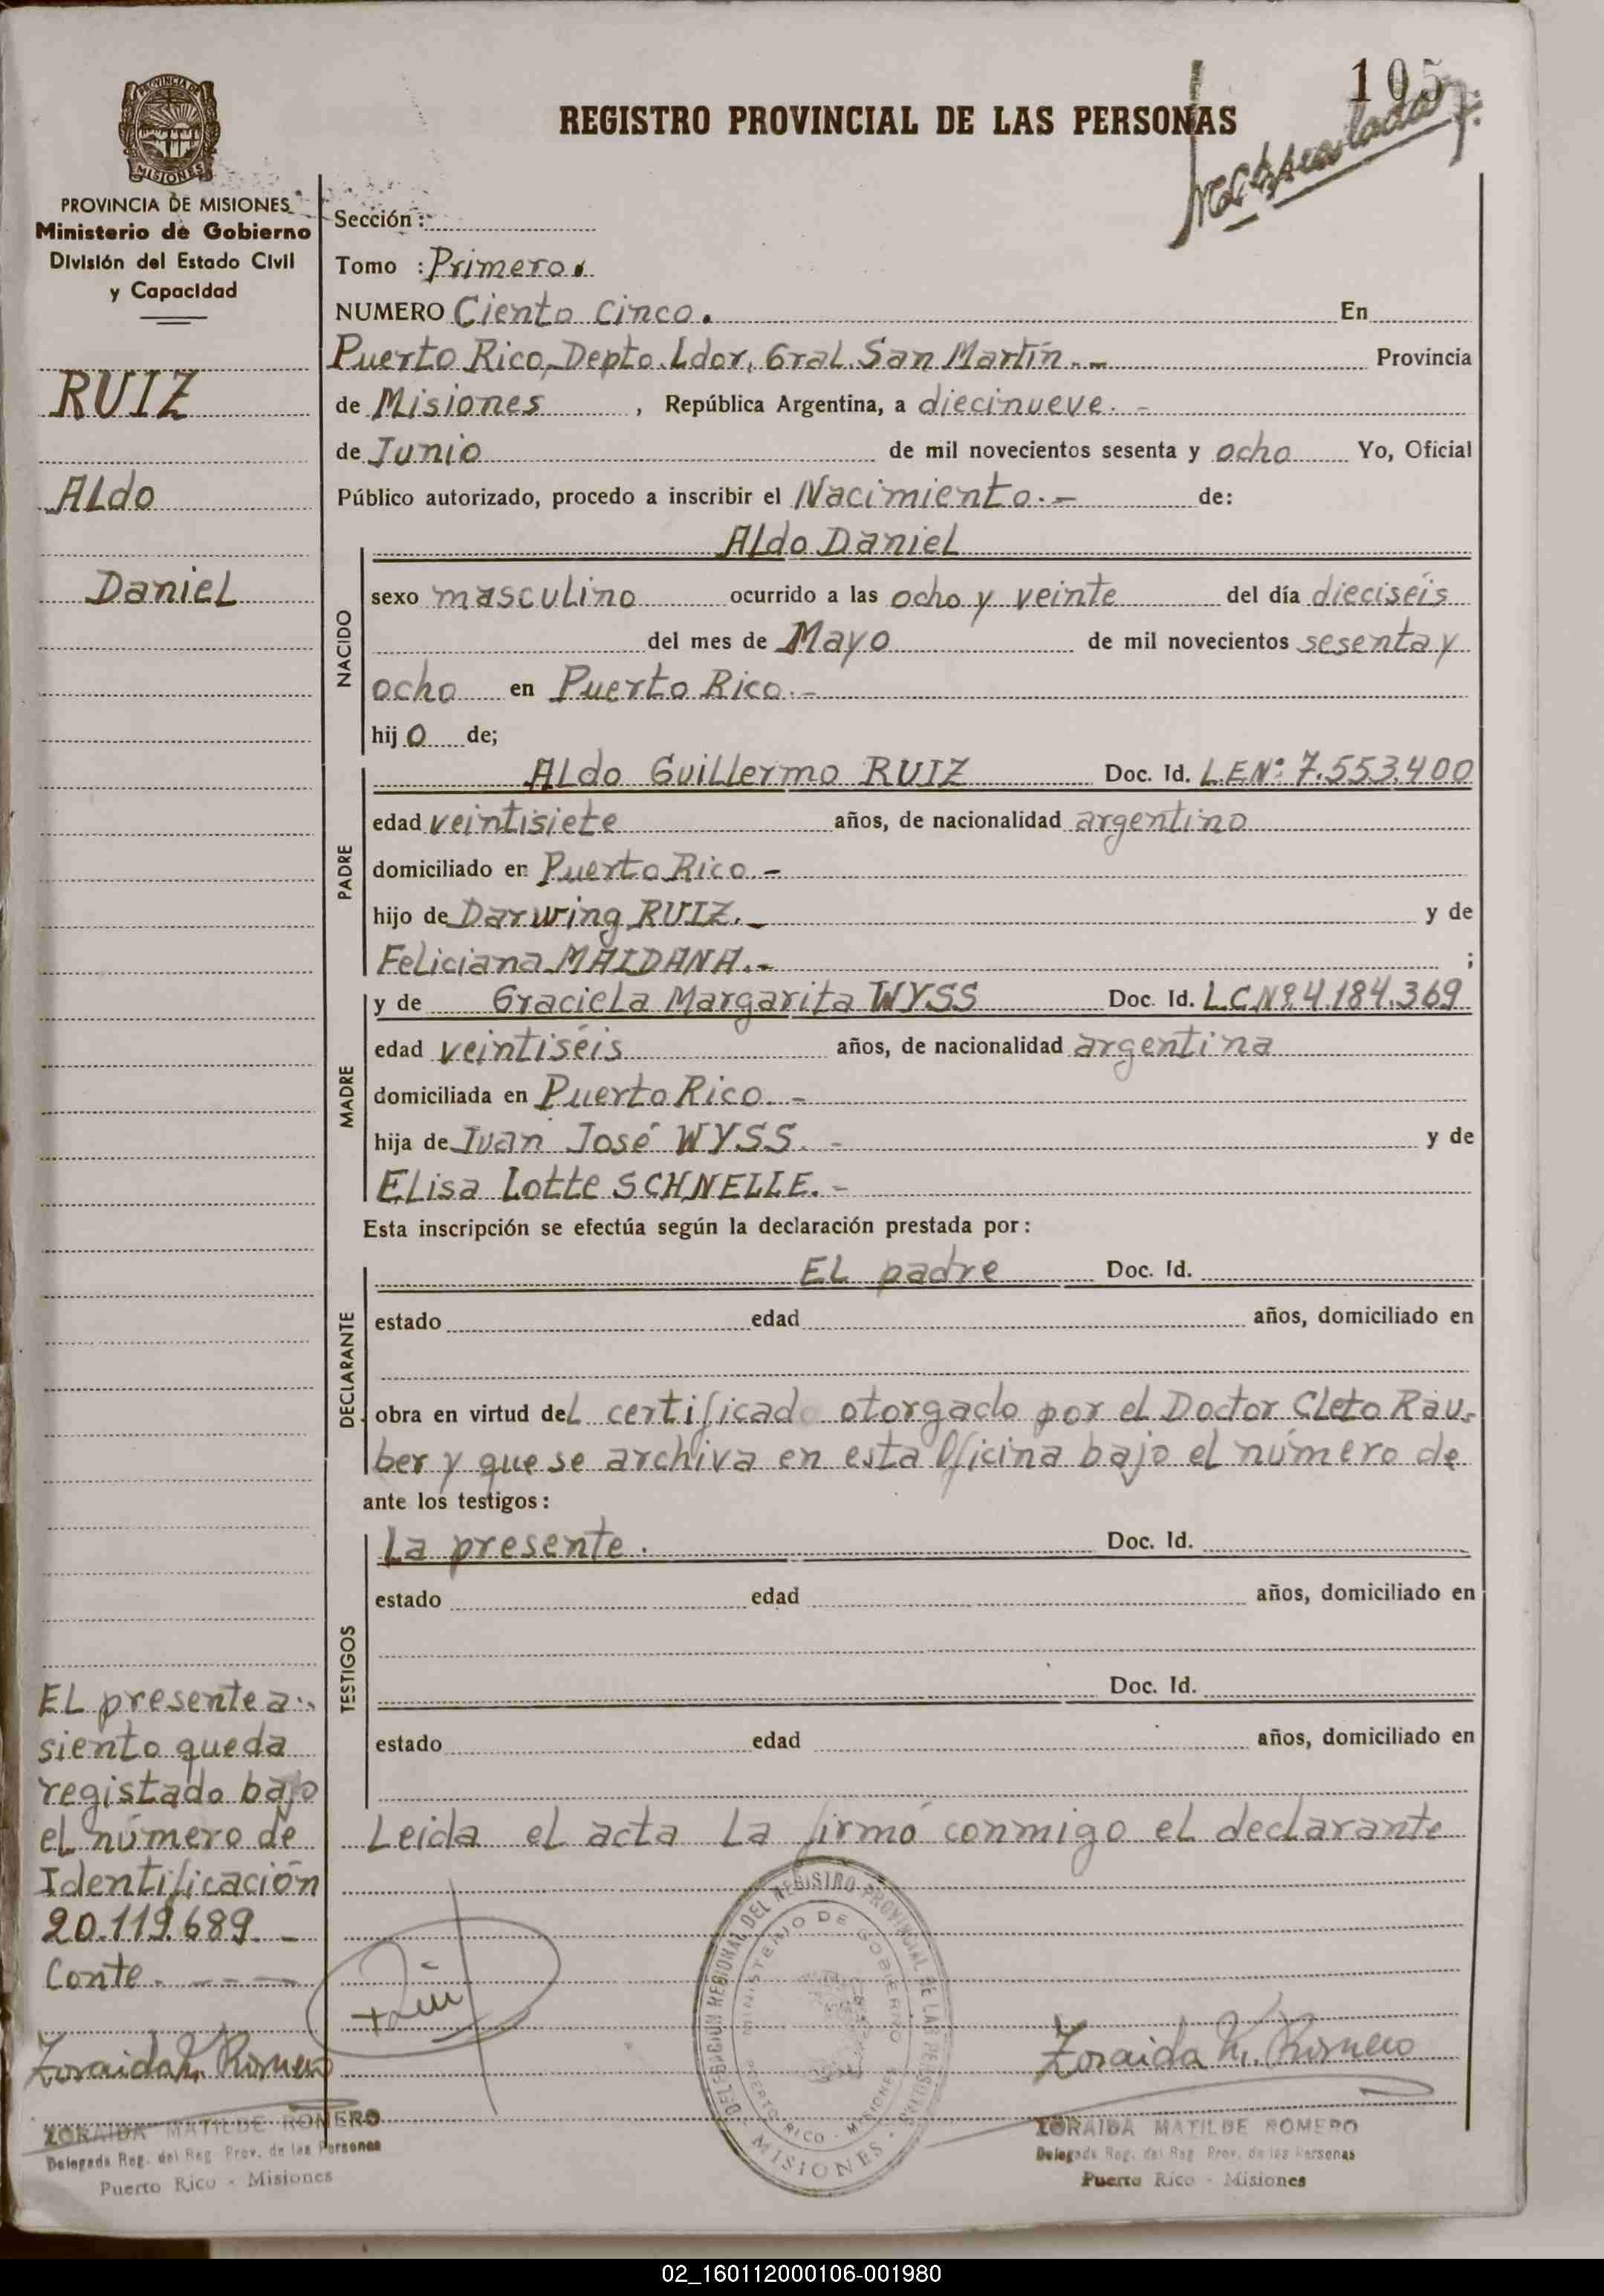 105
REGISTRO PROVINCIAL DE LAS PERSONAS
PROVINCIA DE MISIONES
PROVINCIA DE MISIONES
Ministerio de Gobierno
División del Estado Civil
y Capacidad
RUIZ
Aldo
Daniel
Sección :
Tomo : Primero.
NUMERO Ciento Cinco. En
Puerto Rico, Depto. Ldor. Gral. San Martín.- Provincia
de Misiones , República Argentina, a diecinueve. -
de Junio de mil novecientos sesenta y ocho Yo, Oficial
Público autorizado, procedo a inscribir el Nacimiento.- de:
NACIDO
Aldo Daniel
sexo masculino ocurrido a las ocho y veinte del día dieciséis
del mes de Mayo de mil novecientos sesenta y
ocho en Puerto Rico.-
hijo de;
PADRE
Aldo Guillermo RUIZ Doc. Id. L.E.Nº: 7.553.400
edad veintisiete años, de nacionalidad argentino
domiciliado en Puerto Rico -
hijo de Darwing RUIZ.- y de
Feliciana MAIDANA.- ;
MADRE
y de Graciela Margarita WYSS Doc. Id. L.C.Nº.4.184.369
edad veintiséis años, de nacionalidad argentina
domiciliada en Puerto Rico. -
hija de Juan José WYSS. - y de
Elisa Lotte SCHNELLE. -
Esta inscripción se efectúa según la declaración prestada por:
DECLARANTE
El padre Doc. Id.
estado edad años, domiciliado en
obra en virtud del certificado otorgado por el Doctor Cleto Rau-
ber y que se archiva en esta Oficina bajo el número de
ante los testigos:
TESTIGOS
La presente. Doc. Id.
estado edad años, domiciliado en
Doc. Id.
estado edad años, domiciliado en
Leida el acta la firmó conmigo el declarante
El presente a-
siento queda
registado bajo
el número de
Identificación
20.119.689. -
Conte. - - -
Zoraida M. Romero
ZORAIDA MATILDE ROMERO
Delegada Reg. del Reg. Prov. de las Personas
Puerto Rico - Misiones
DELEGACION REGIONAL DEL REGISTRO PROVINCIAL DE LAS PERSONAS
MINISTERIO DE GOBIERNO
PUERTO RICO - MISIONES
MISIONES
Zoraida M. Romero
ZORAIDA MATILDE ROMERO
Delegada Reg. del Reg. Prov. de las Personas
Puerto Rico - Misiones
02_160112000106-001980